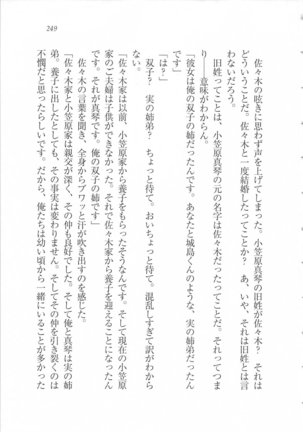 249
佐々木の呟きに思わず声を上げてしまった。小笠原真琴の旧姓が佐々木？　それは
どういうことだ。佐々木と一度結婚したってことか？　あ、いや、それは旧姓とは言
わないだろう。
旧姓ってことは、小笠原真琴の元の名字は佐々木だったってことだ。それってつま
り――意味がわからん。
「彼女は俺の双子の姉だったんです。あなたと城島くんのような、実の姉弟だったん
です」
双子？　実の姉弟？　ちょっと待て。おいちょっと待て。混乱しすぎて訳がわから
ない。
「佐々木家は以前、小笠原家から養子をもらったそうなんです。そして現在の小笠原
家のご夫婦は子供ができなかった。それで佐々木家から養子を迎えることになったん
です。それが真琴です。俺の双子の姉です」
佐々木の言葉を聞き、全身からブワッと汗が吹き出すのを感じた。
「佐々木家と小笠原家は親交が深く、その仲も良好でした。そして俺と真琴は実の姉
弟。養子に出したとしても、その事実は変わりません。そしてその仲を引き裂くのは
不憫だと思ったらしいです。だから、俺たちは幼い頃から一緒にいることが多かった